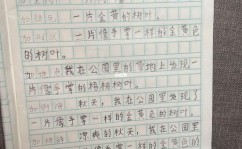 一片金黄的树叶。
一片像手掌一样的金黄色
的树叶。
我在公园里的草地上发现一
片像手掌的梧桐树叶。
秋天，我在公园里发现了
一片像手掌一样的金黄色的树叶。
凉爽的秋天，我在公园里的
一片像手掌一样的金黄色的